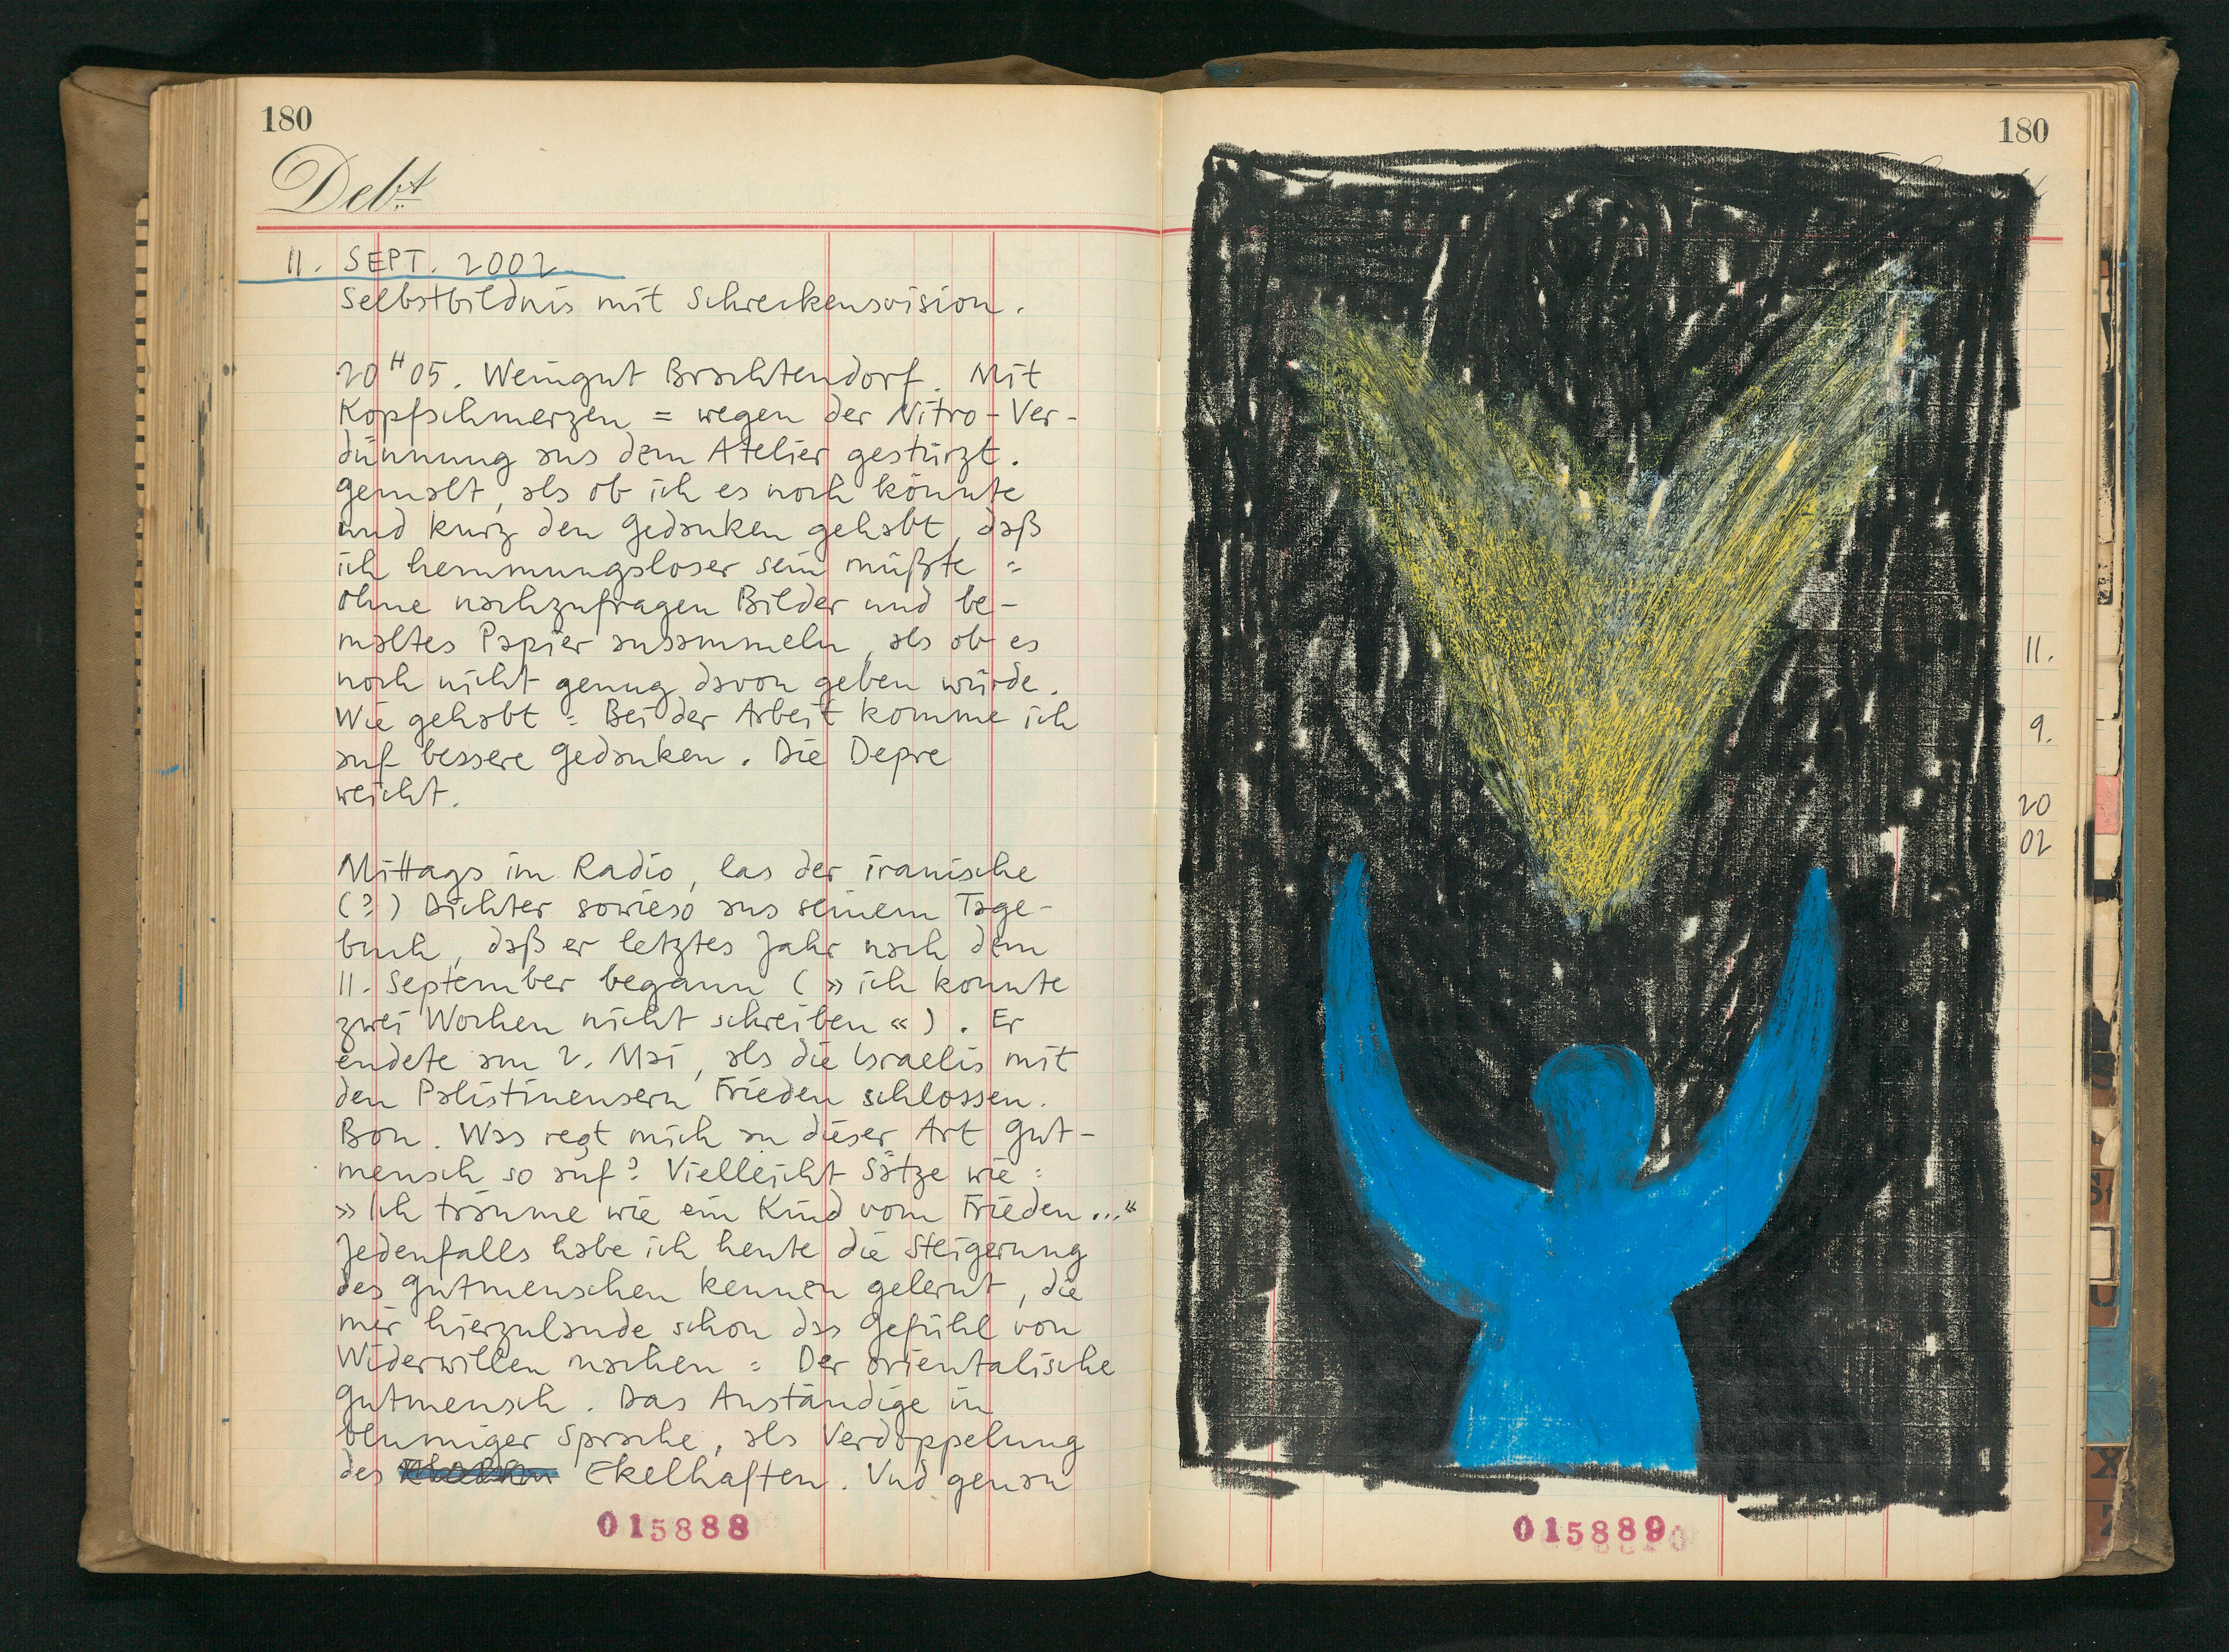 180
Debt
11. SEPT. 2002
Selbstbildnis mit Schreckensvision.
20H05. Weingut Brachtendorf. Mit
Kopfschmerzen = wegen der Nitro-Ver-
dünnung aus dem Atelier gestürzt.
Gemalt, als ob ich es noch könnte
und kurz den Gedanken gehabt, daß
ich hemmungsloser sein müßte =
Ohne nachzufragen Bilder und be-
maltes Papier ansammeln, als ob es
noch nicht genug davon geben würde.
Wie gehabt = Bei der Arbeit komme ich
auf bessere Gedanken. Die Depre
weicht.
Mittags im Radio, las der iranische
(?) Dichter sowieso aus seinem Tage-
buch, daß er letztes Jahr nach dem
11. September begann (»ich konnte
zwei Wochen nicht schreiben«). Er
endete am 2. Mai, als die Israelis mit
den Palistinensern Frieden schlossen.
Bon. Was regt mich an dieser Art Gut-
mensch so auf? Vielleicht Sätze wie:
»Ich träume wie ein Kind vom Frieden..."
Jedenfalls habe ich heute die Steigerung
des Gutmenschen kennen gelernt, die
mir hierzulande schon das Gefühl von
Widerwillen machen = Der orientalische
Gutmensch. Das Anständige in
blumiger Sprache, als Verdoppelung
des Ekelhaften. Und genau
015888
180
11.
9.
20
02
015889